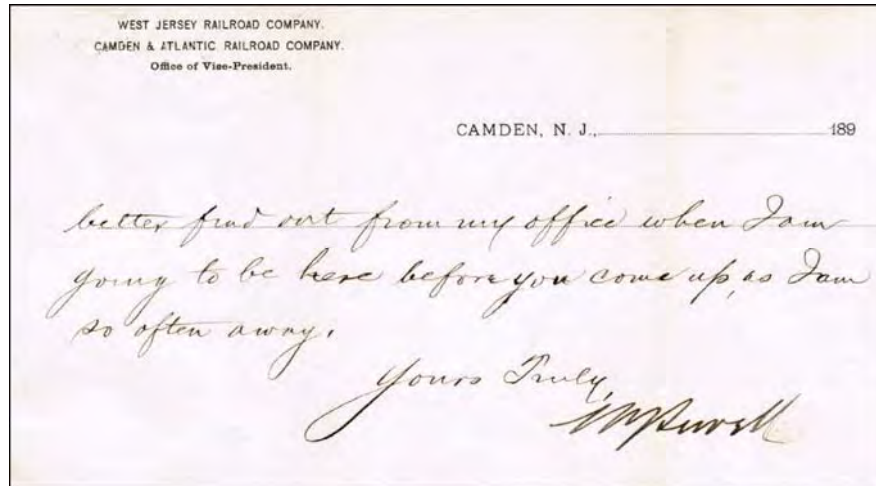 WEST JERSEY RAILROAD COMPANY.
CAMDEN & ATLANTIC RAILROAD COMPANY.
Office of Vice-President.
CAMDEN, N. J., 189
better find out from my office when I am
going to be here before you come up, as I am
so often away.
Yours Truly,